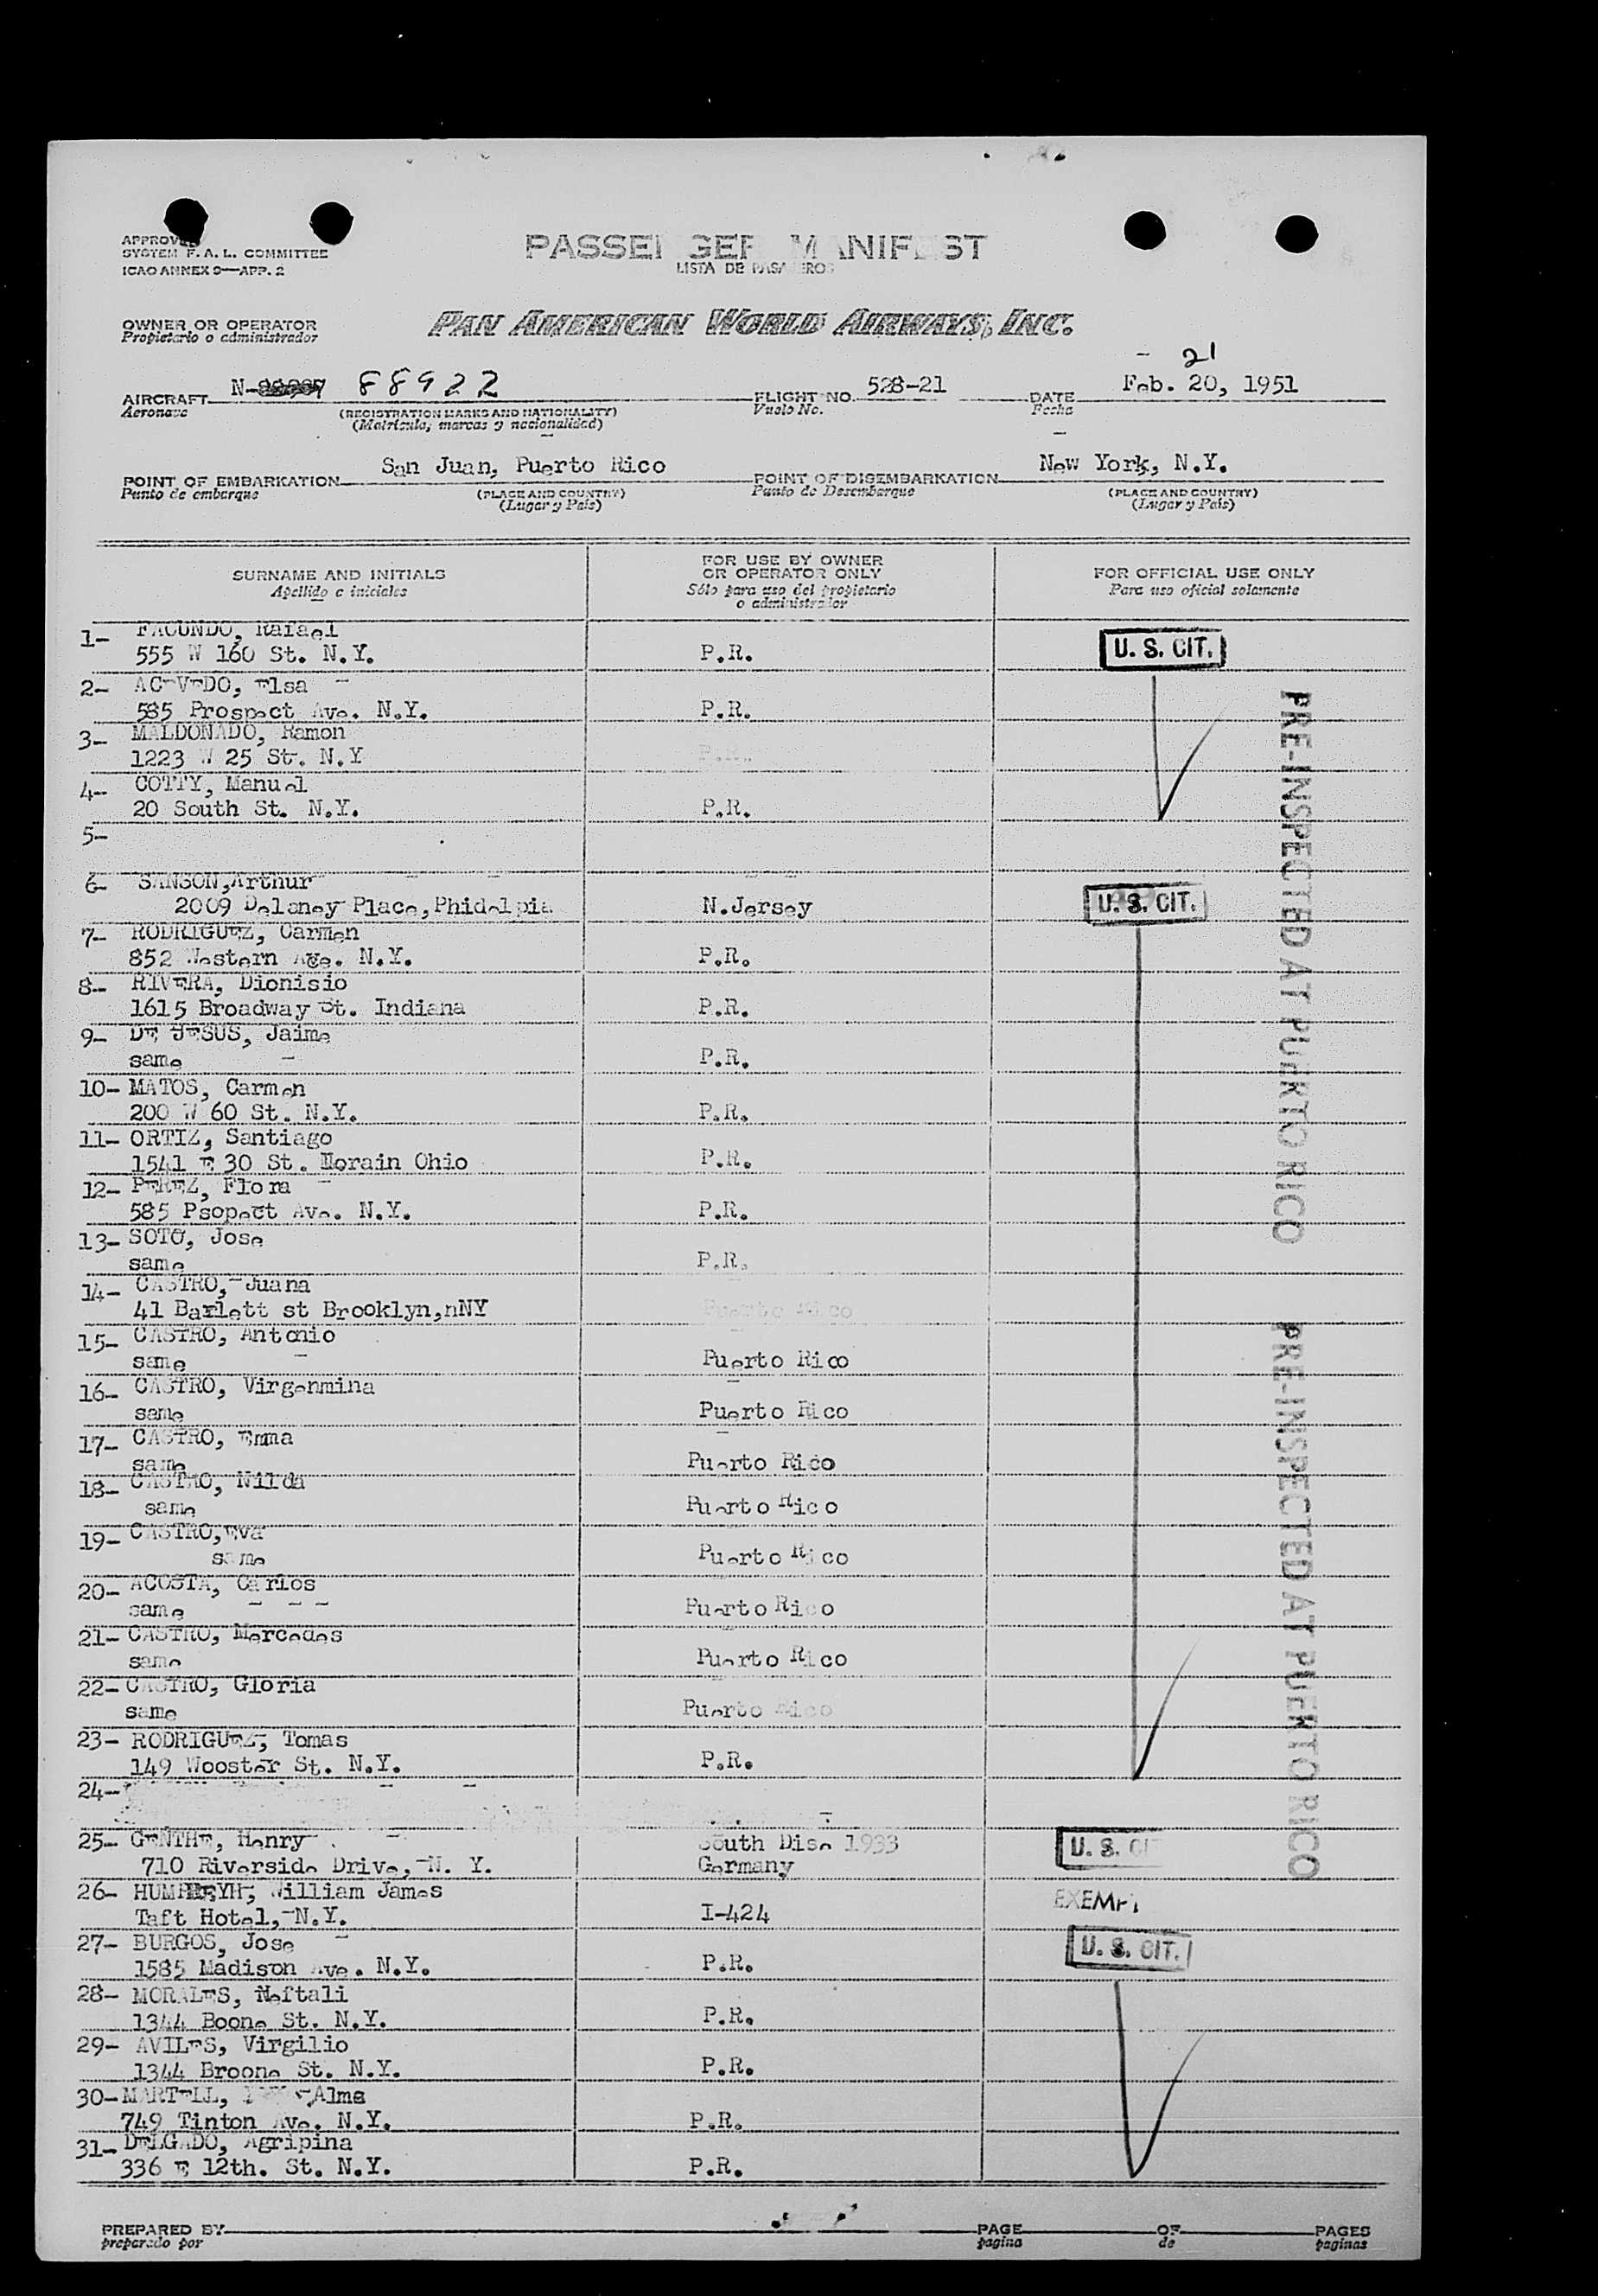 SYSTEM F. A. L. COMMITTEE
ICAO ANNEX 9—APP. 2
PASSENGER MANIFEST
LISTA DE PASAJEROS
OWNER OR OPERATOR
Propietario o administrador
PAN AMERICAN WORLD AIRWAYS, INC.
21
AIRCRAFT N- 88922 FLIGHT NO. 528-21 DATE Feb. 20, 1951
Aeronave (REGISTRATION MARKS AND NATIONALITY) Vuelo No. Fecha
(Matrícula, marcas y nacionalidad)
POINT OF EMBARKATION San Juan, Puerto Rico POINT OF DISEMBARKATION New York, N.Y.
Punto de embarque (PLACE AND COUNTRY) Punto de Desembarque (PLACE AND COUNTRY)
(Lugar y País) (Lugar y País)
SURNAME AND INITIALS FOR USE BY OWNER OR OPERATOR ONLY FOR OFFICIAL USE ONLY
Apellido e iniciales Sólo para uso del propietario o administrador Para uso oficial solamente
1- FACUNDO, Rafael
555 W 160 St. N.Y. P.R. U. S. CIT.
2- ACEVEDO, Elsa
585 Prospect Ave. N.Y. P.R.
3- MALDONADO, Ramon
1223 W 25 St. N.Y P.R.
4- COTTY, Manuel
20 South St. N.Y. P.R.
5-
6- SANSON,Arthur
2009 Delaney Place,Phidelpia N.Jersey U. S. CIT.
7- RODRIGUEZ, Carmen
852 Western Ave. N.Y. P.R.
8- RIVERA, Dionisio
1615 Broadway St. Indiana P.R.
9- DE JESUS, Jaime
same P.R.
10- MATOS, Carmen
200 W 60 St. N.Y. P.R.
11- ORTIZ, Santiago
1541 E 30 St. Lorain Ohio P.R.
12- PEREZ, Flora
585 Psopect Ave. N.Y. P.R.
13- SOTO, Jose
same P.R.
14- CASTRO, Juana
41 Barlett st Brooklyn,nNY Puerto Rico
15- CASTRO, Antonio
same Puerto Rico
16- CASTRO, Virgenmina
same Puerto Rico
17- CASTRO, Emma
same Puerto Rico
18- CASTRO, Nilda
same Puerto Rico
19- CASTRO,Eva
same Puerto Rico
20- ACOSTA, Carlos
same Puerto Rico
21- CASTRO, Mercedes
same Puerto Rico
22- CASTRO, Gloria
same Puerto Rico
23- RODRIGUEZ, Tomas
149 Wooster St. N.Y. P.R.
24-
25- GENTHE, Henry South Dise 1933
710 Riverside Drive, N. Y. Germany U. S. CIT
26- HUMPHREYH, William James
Taft Hotel, N.Y. I-424 EXEMPT
27- BURGOS, Jose
1585 Madison Ave. N.Y. P.R. U. S. CIT.
28- MORALES, Neftali
1344 Boone St. N.Y. P.R.
29- AVILES, Virgilio
1344 Broone St. N.Y. P.R.
30- MARTELL, Alma
749 Tinton Ave. N.Y. P.R.
31- DELGADO, Agripina
336 E 12th. St. N.Y. P.R.
PRE-INSPECTED AT PUERTO RICO
PRE-INSPECTED AT PUERTO RICO
PREPARED BY PAGE OF PAGES
preparado por pagina de paginas